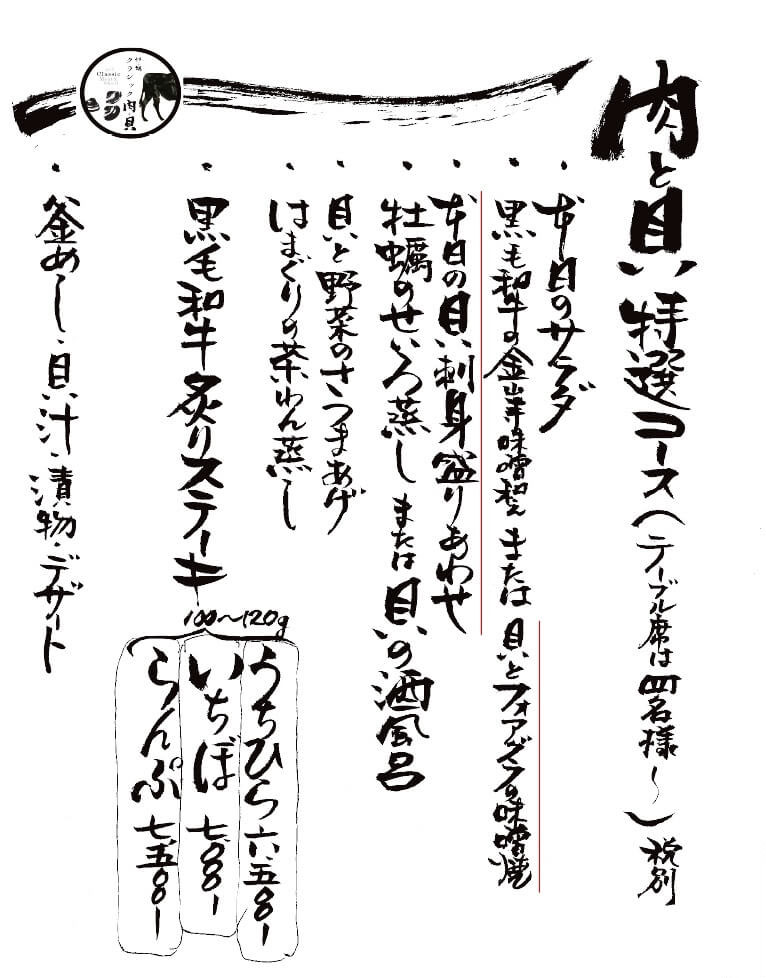 肉と貝 特選コース(テーブル席は四名様〜)税別
・本日のサラダ
・黒毛和牛の金山寺味噌和え または 貝とフォアグラの味噌焼
・本日の貝刺身盛りあわせ
・牡蠣のせいろ蒸し または 貝の酒風呂
・貝と野菜のさつまあげ
・はまぐりの茶わん蒸し
・黒毛和牛炙りステーキ
100〜120g
うちひら 六、五〇〇ー
いちぼ 七、〇〇〇ー
らんぷ 七、五〇〇ー
・釜めし・貝汁・漬物・デザート
クラシック肉貝
Classic